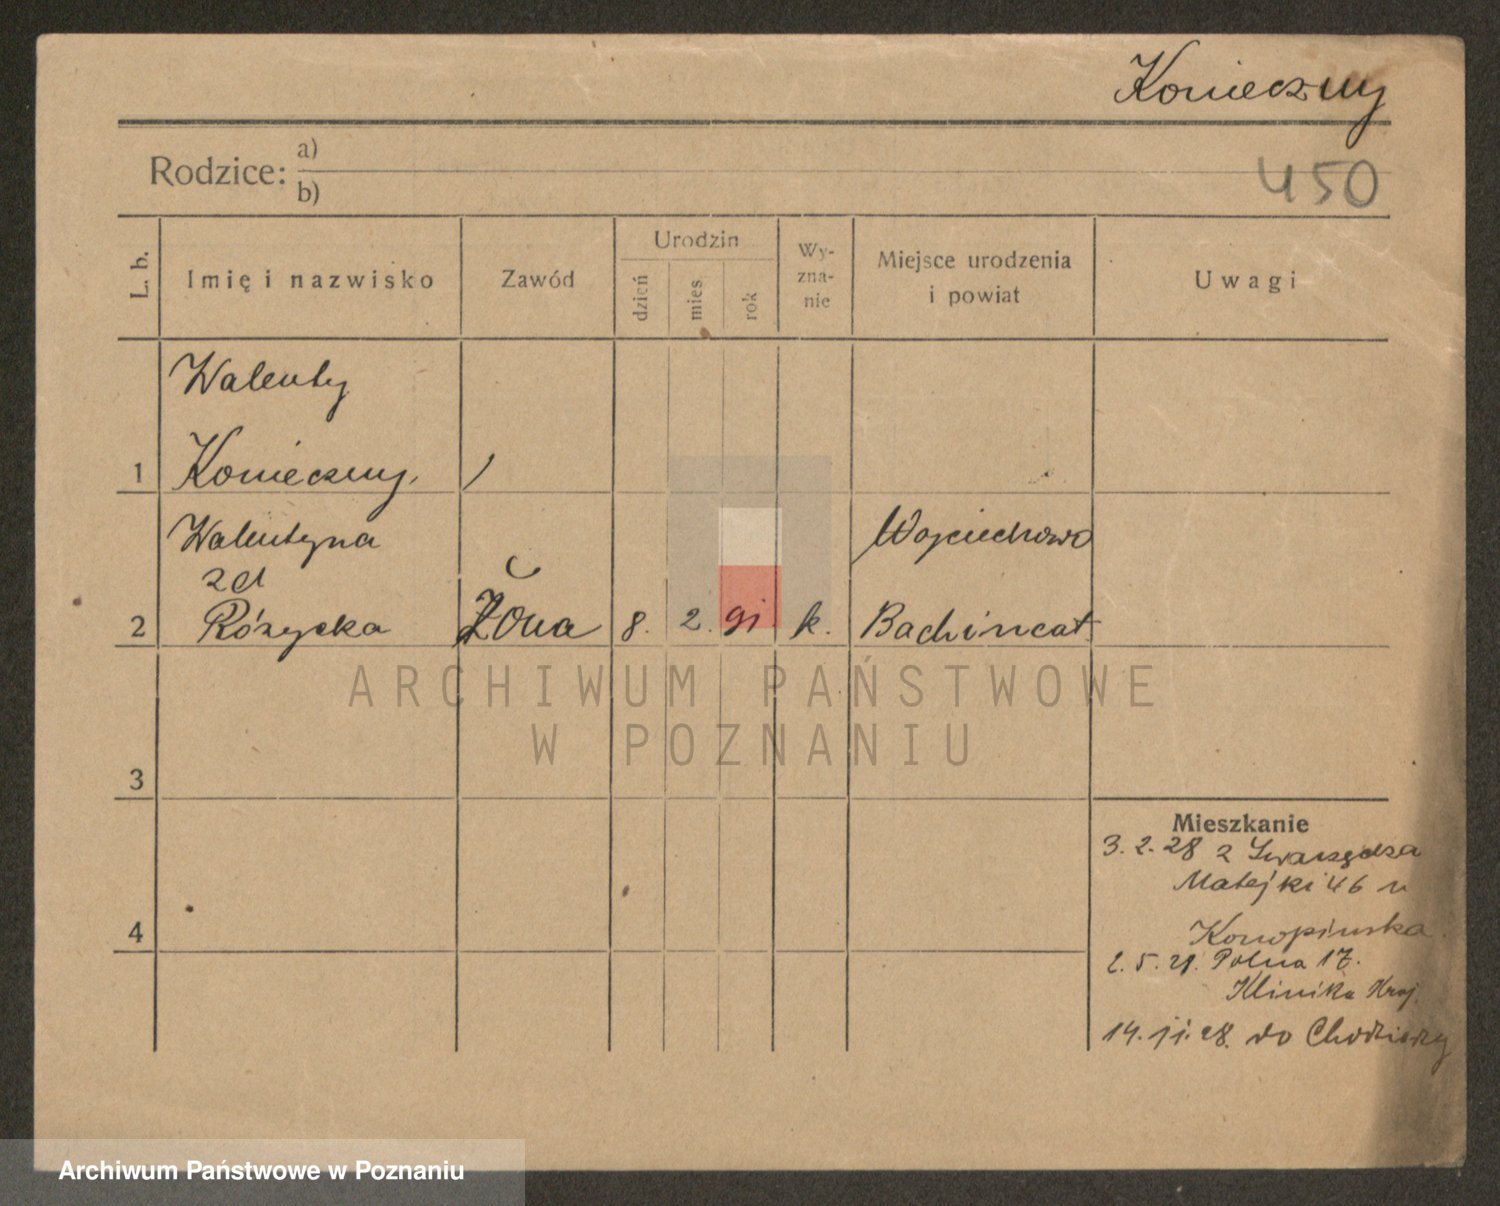 Konieczny
450
Rodzice: a)
b)
L. b.
Imię i nazwisko
Zawód
Urodzin
dzień
mies.
rok
Wy-
zna-
nie
Miejsce urodzenia
i powiat
Uwagi
Walenty
1 Konieczny.
Walentyna
zd
2 Różycka Żona 8. 2. 91. k.
Wojciechowo
Bachincat
3
4
Mieszkanie
3. 2. 28 z Swarzędza
Matejki 46 u
Konopinska.
2. 5. 28. Polna 17.
Klinika Kraj.
14. 11. 28. do Chodzieży
ARCHIWUM PAŃSTWOWE
W POZNANIU
Archiwum Państwowe w Poznaniu